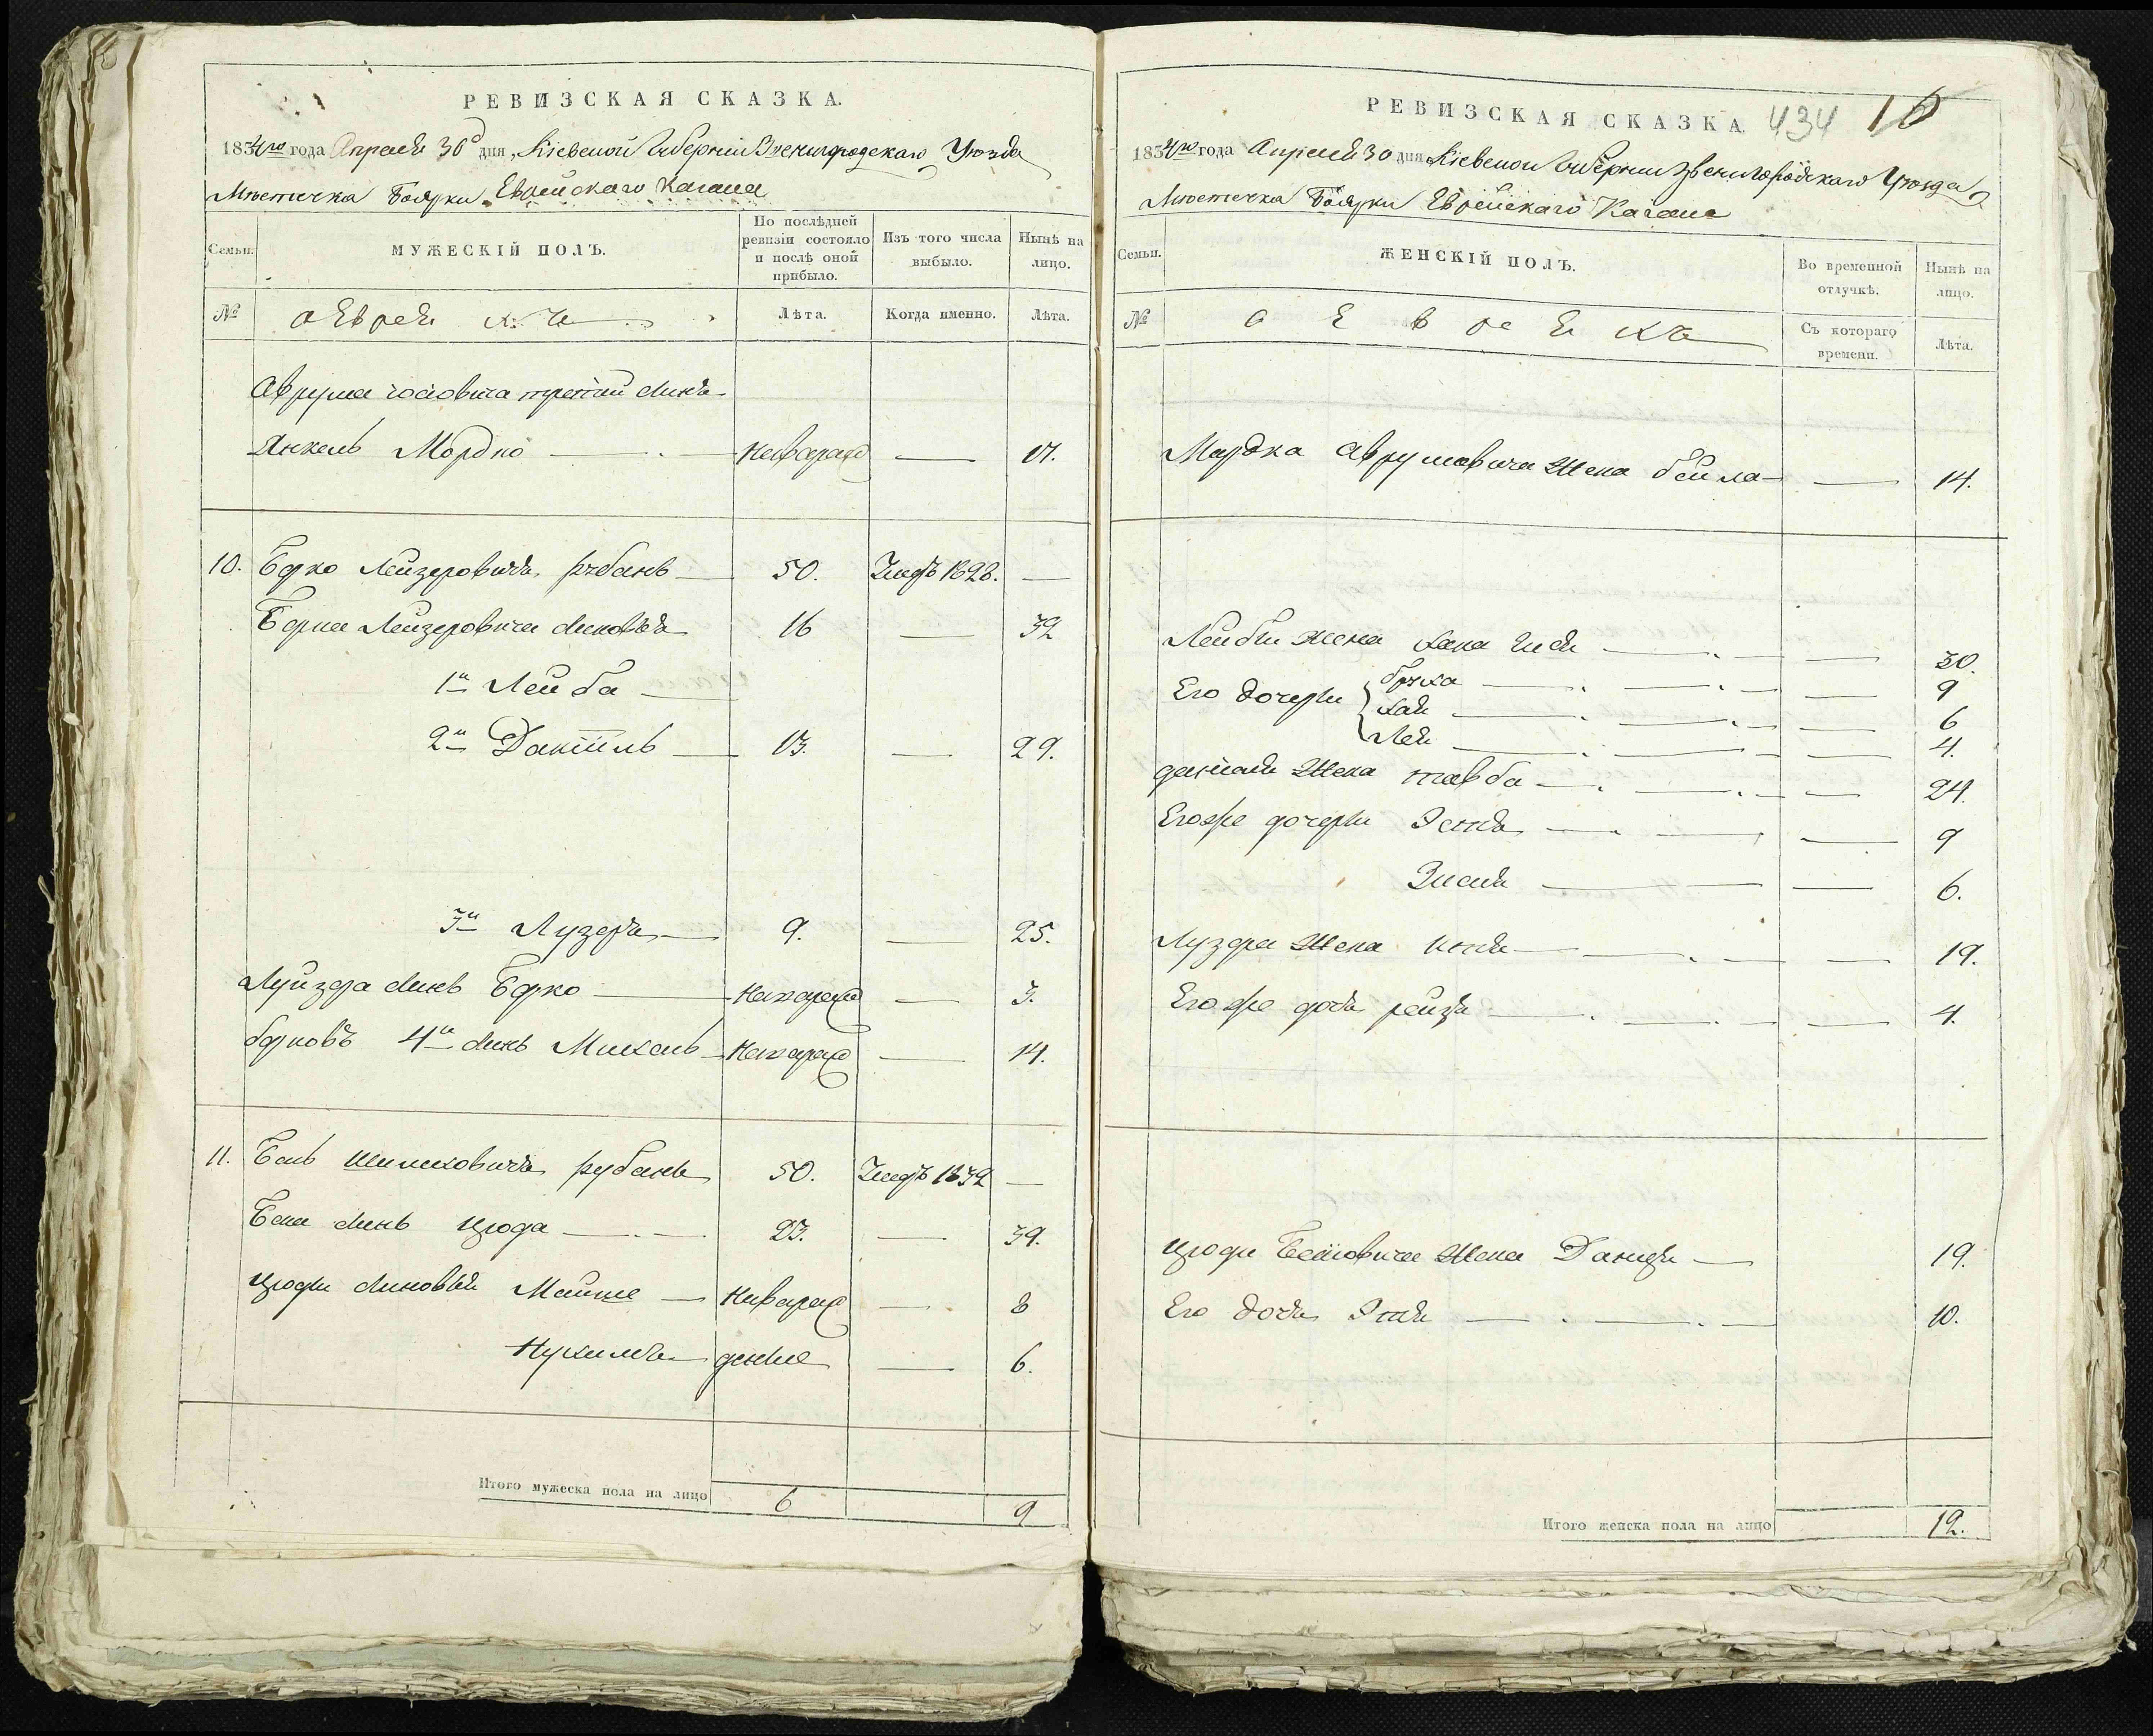 РЕВИЗСКАЯ СКАЗКА.
1834го года Апреля 30 дня, Кіевской Губерніи Звенигородскаго Уезда
Местечка Боярки Еврейскаго Кагала
Семьи.
МУЖЕСКІЙ ПОЛЪ.
По послѣдней ревизіи состояло и послѣ оной прибыло.
Изъ того числа выбыло.
Нынѣ на лицо.
№
о Евреяхъ
Лѣта.
Когда именно.
Лѣта.
Аврума Іосіовича третій синъ
Янкель Мордко — — 17.
10. Берко Лейзеровичъ рубань 50. 1828. —
Берка Лейзеровича синовья 16 — 32
1й Лейба
2й Даніиль 13. — 29.
3й Лузеръ 9. — 25.
Луйзера синъ Берко — — 3.
берковъ 4й синъ Михель — — 14.
11. Бень рубань 50. 1832 —
синъ Цюда 23. — 39.
Цюди синовья Мойше — — 8
Нухимъ — 6.
Итого мужеска пола на лицо 6 9
РЕВИЗСКАЯ СКАЗКА. 434 16
1834го года Апреля 30 дня Кіевской Губерніи Звенигородскаго Уезда
Местечка Боярки Еврейскаго Кагала
Семьи.
ЖЕНСКІЙ ПОЛЪ.
Во временной отлучкѣ.
Нынѣ на лицо.
№
о Еврейкахъ
Съ котораго времени.
Лѣта.
Мордка Аврумовича Жена бейла — 14.
Лейби жена хана — 30.
Его дочери — 9
хая — 6
Лея — 4.
Жена тавба — 24.
Егоже дочери Эстя — 9
Зися — 6.
Лузера Жена — 19.
Егоже дочь рейзя — 4.
Цюди Жена 19.
Его дочь Этя 10.
Итого женска пола на лицо 12.